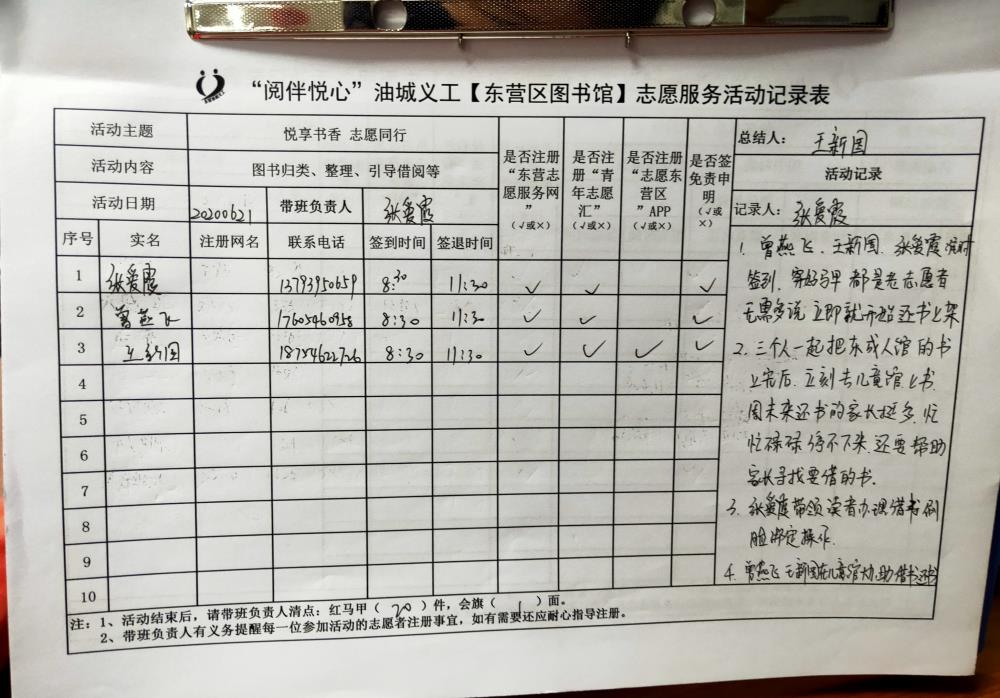 “阅伴悦心”油城义工【东营区图书馆】志愿服务活动记录表
活动主题 悦享书香 志愿同行
活动内容 图书归类、整理、引导借阅等
活动日期 20200621 带班负责人 张爱霞
是否注册“东营志愿服务网”（√或×）
是否注册“青年志愿汇”（√或×）
是否注册“志愿东营区”APP（√或×）
是否签免责声明（√或×）
序号 实名 注册网名 联系电话 签到时间 签退时间
1 张爱霞 13793950659 8:30 11:30 √ √ √
2 曾燕飞 17605460958 8:30 11:30 √ √ √
3 王新国 18754622726 8:30 11:30 √ √ √ √
4
5
6
7
8
9
10
总结人： 王新国
活动记录
记录人： 张爱霞
1. 曾燕飞、王新国、张爱霞准时
签到，穿好马甲 都是老志愿者
无需多说 立即就开始还书上架
2. 三个人一起把东成人馆的书
上完后，立刻去儿童馆上书.
周末来还书的家长挺多，忙
忙碌碌停不下来.还要帮助
家长寻找要借的书.
3. 张爱霞带领读者办理借书刷
脸绑定操作.
4. 曾燕飞 王新国在儿童馆协助借书还书
注：1、活动结束后，请带班负责人清点：红马甲（ 20 ）件，会旗（ 1 ）面。
2、带班负责人有义务提醒每一位参加活动的志愿者注册事宜，如有需要还应耐心指导注册。